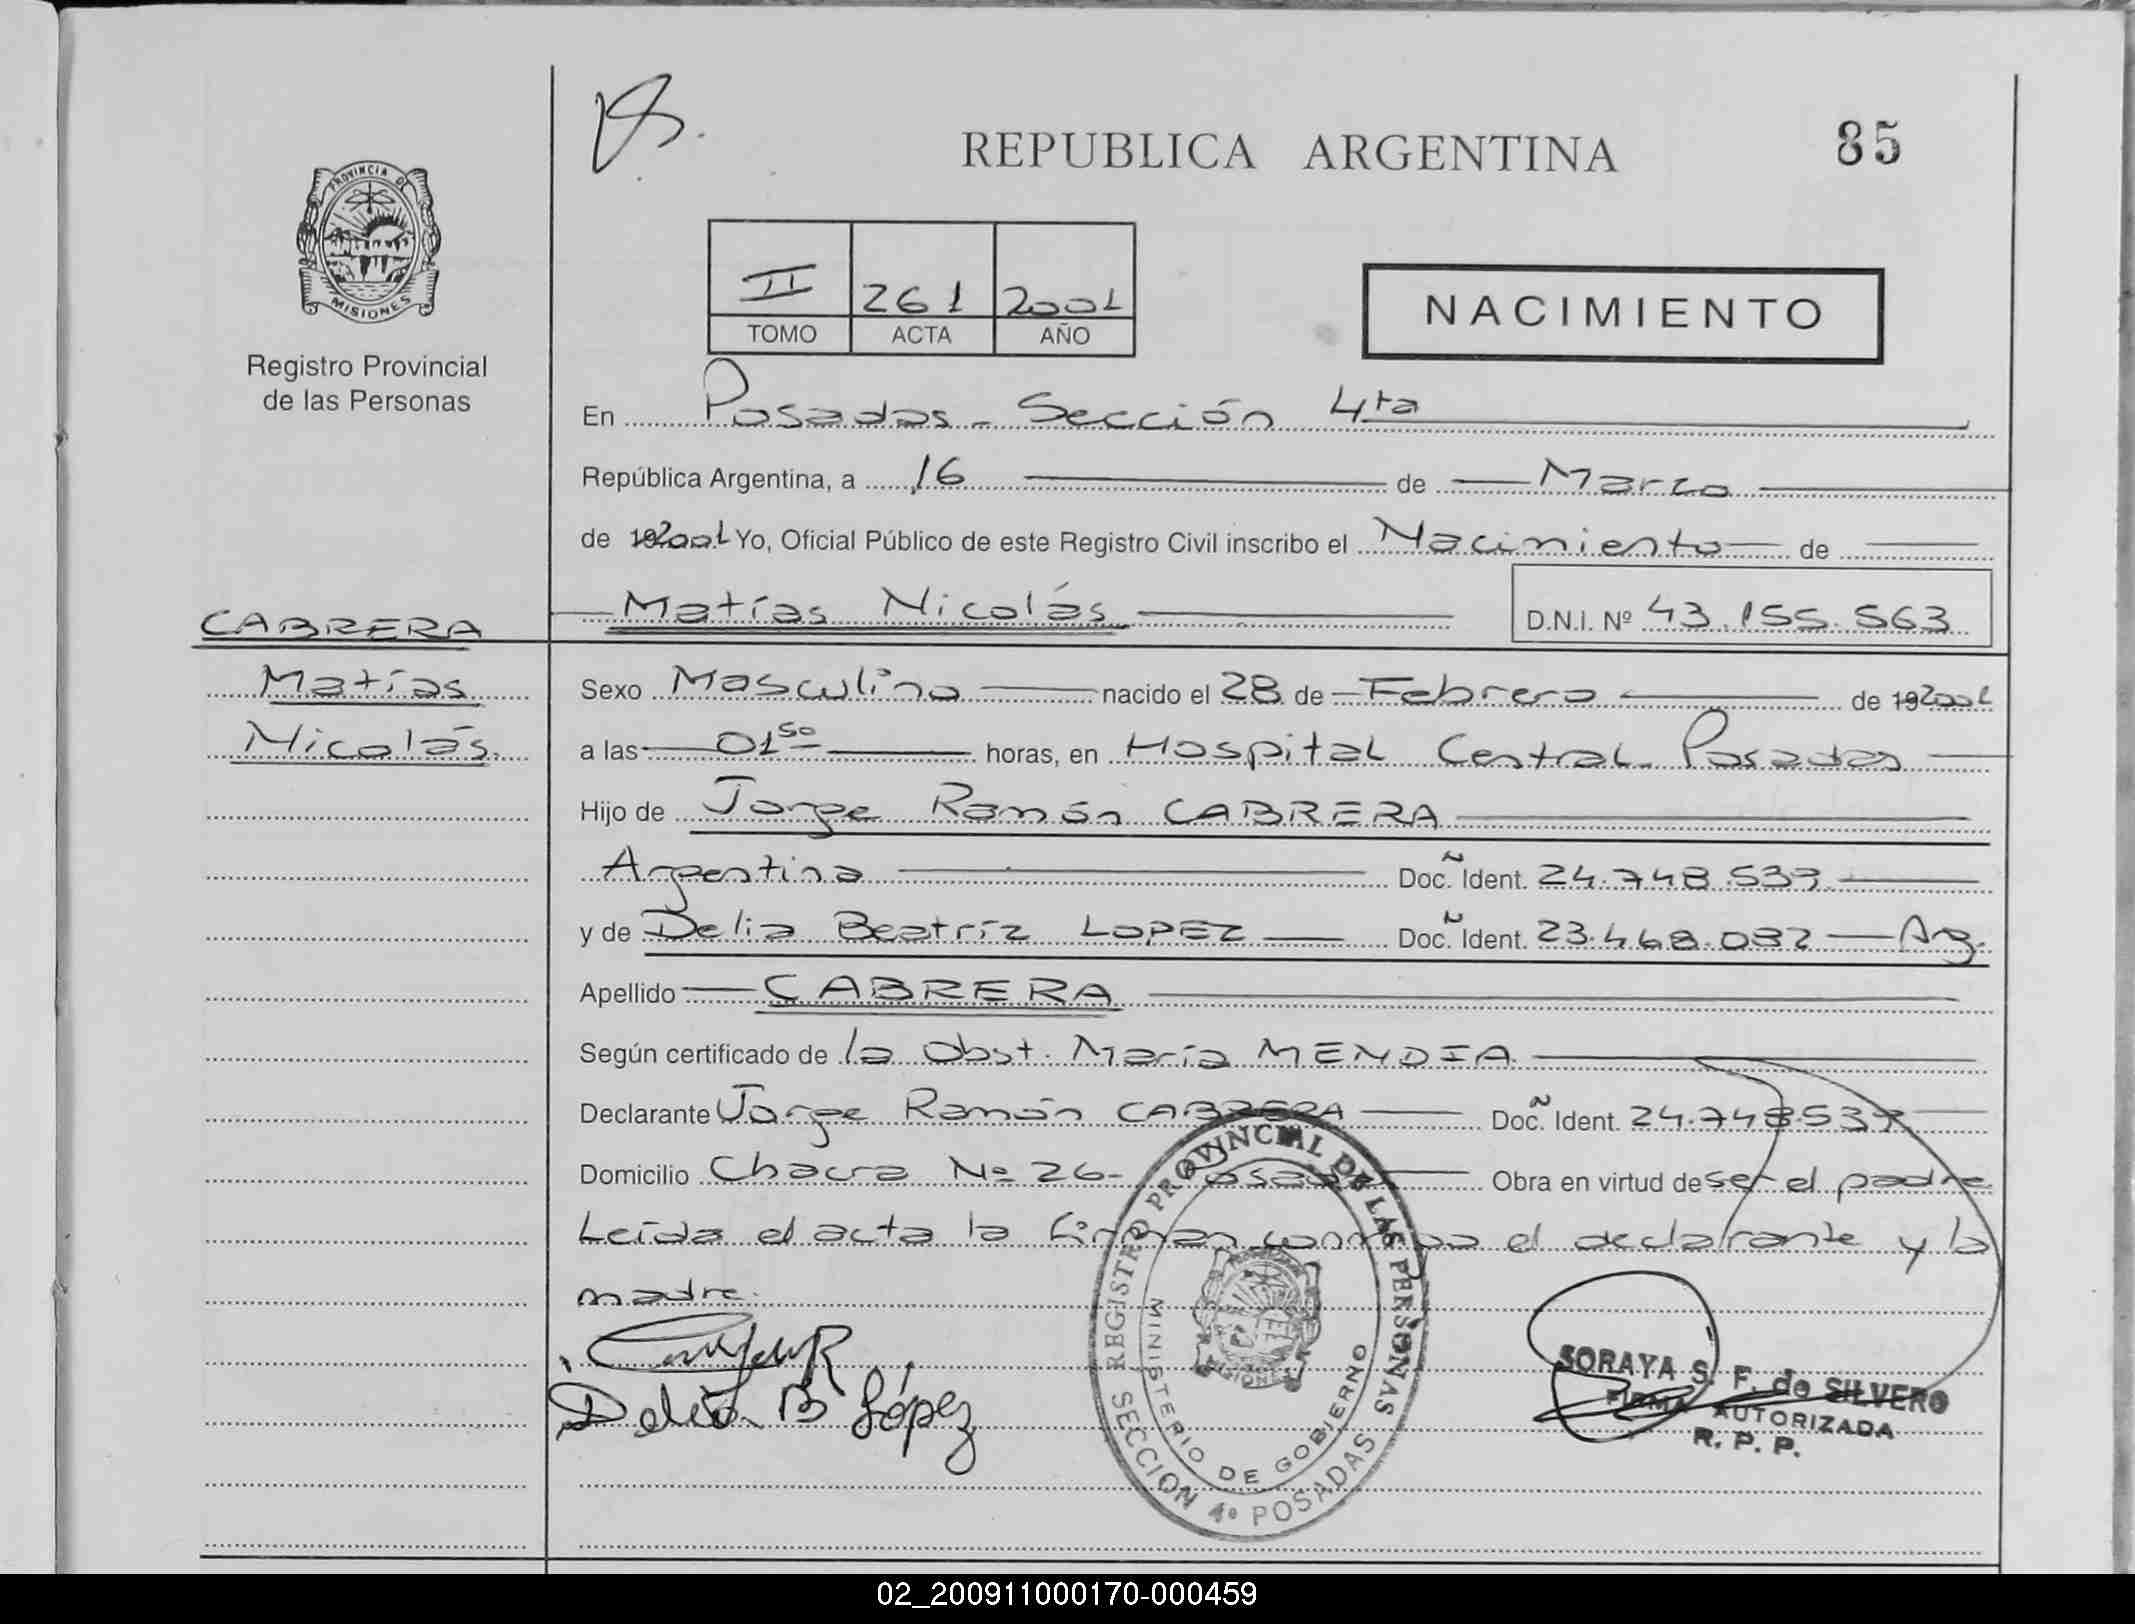 REPUBLICA ARGENTINA
85
PROVINCIA DE
MISIONES
Registro Provincial
de las Personas
II 261 2001
TOMO ACTA AÑO
NACIMIENTO
En Posadas - Sección 4ta
República Argentina, a 16 de Marzo
de 192001 Yo, Oficial Público de este Registro Civil inscribo el Nacimiento de
Matías Nicolás D.N.I. Nº 43.155.563
CABRERA
Matías
Nicolás.
Sexo Masculino nacido el 28 de Febrero de 192001
a las 01⁵⁰ horas, en Hospital Central - Posadas
Hijo de Jorge Ramón CABRERA
Argentina Doc. Ident. 24.748.539
y de Delia Beatríz LOPEZ Doc. Ident. 23.468.032 Arg.
Apellido CABRERA
Según certificado de la Obst. María MENDIA
Declarante Jorge Ramón CABRERA Doc. Ident. 24.748.539
Domicilio Chacra Nº 26- Posadas Obra en virtud de ser el padre
Leída el acta la firman conmigo el declarante y la
madre.
Delia B López
REGISTRO PROVINCIAL DE LAS PERSONAS
MINISTERIO DE GOBIERNO
MISIONES
SECCION 4º POSADAS
SORAYA S. F. de SILVERO
FIRMA AUTORIZADA
R. P. P.
02_200911000170-000459